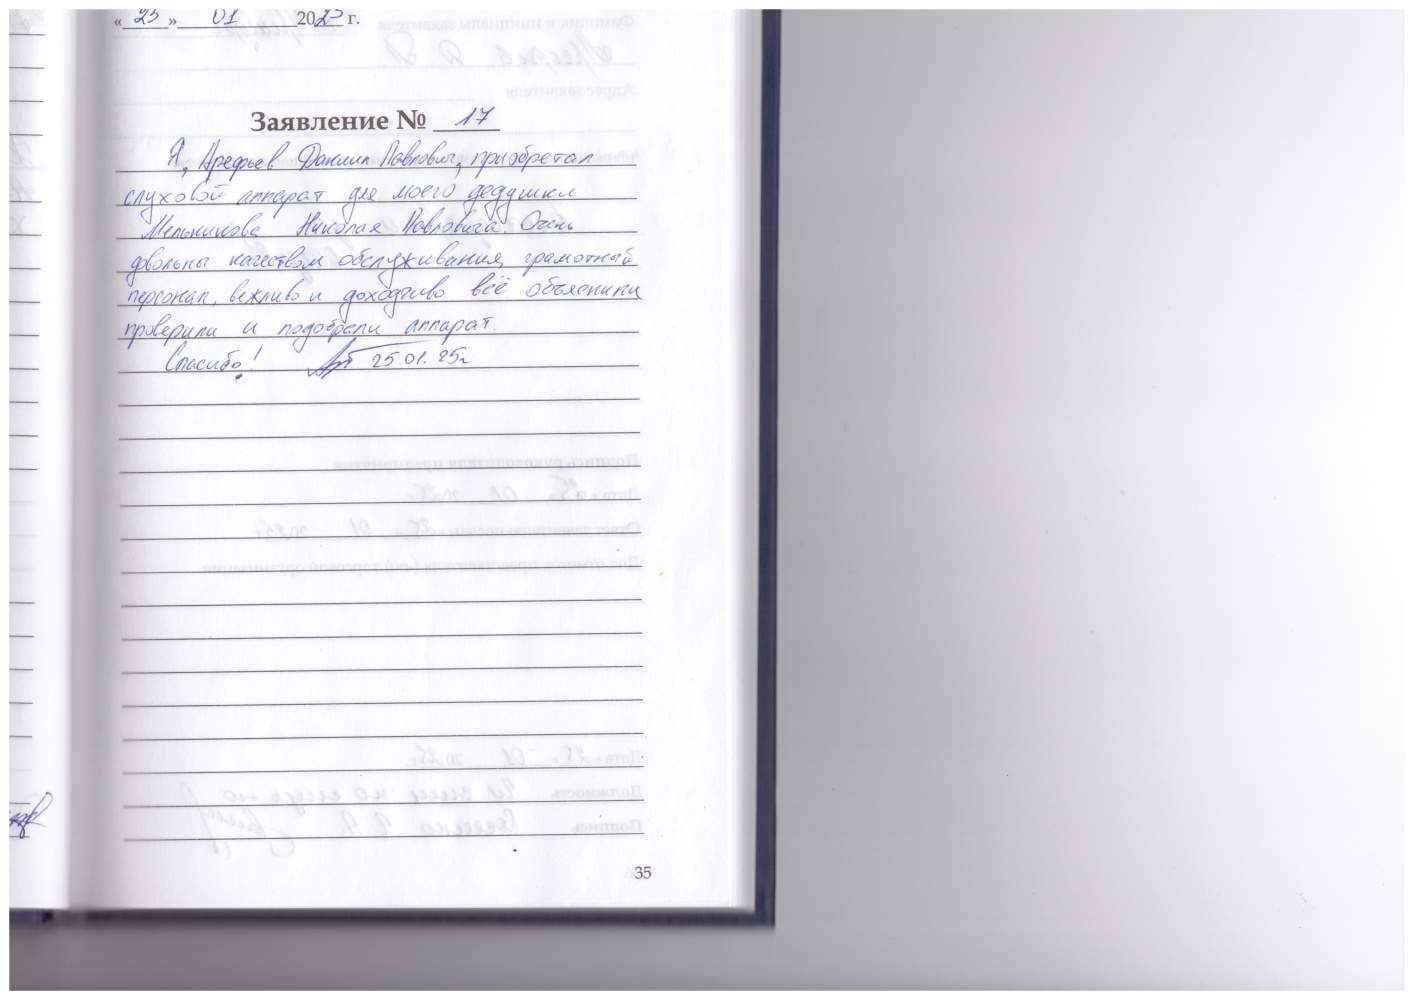 «25» 01 2025 г.
Заявление № 17
Я, Арефьев Даниил Павлович, приобретал
слуховой аппарат для моего дедушки
Мельникова Николая Павловича. Очень
довольны качеством обслуживания, грамотный
персонал, вежливо и доходчиво всё объяснили
проверили и подобрали аппарат.
Спасибо! 25.01.25г
35